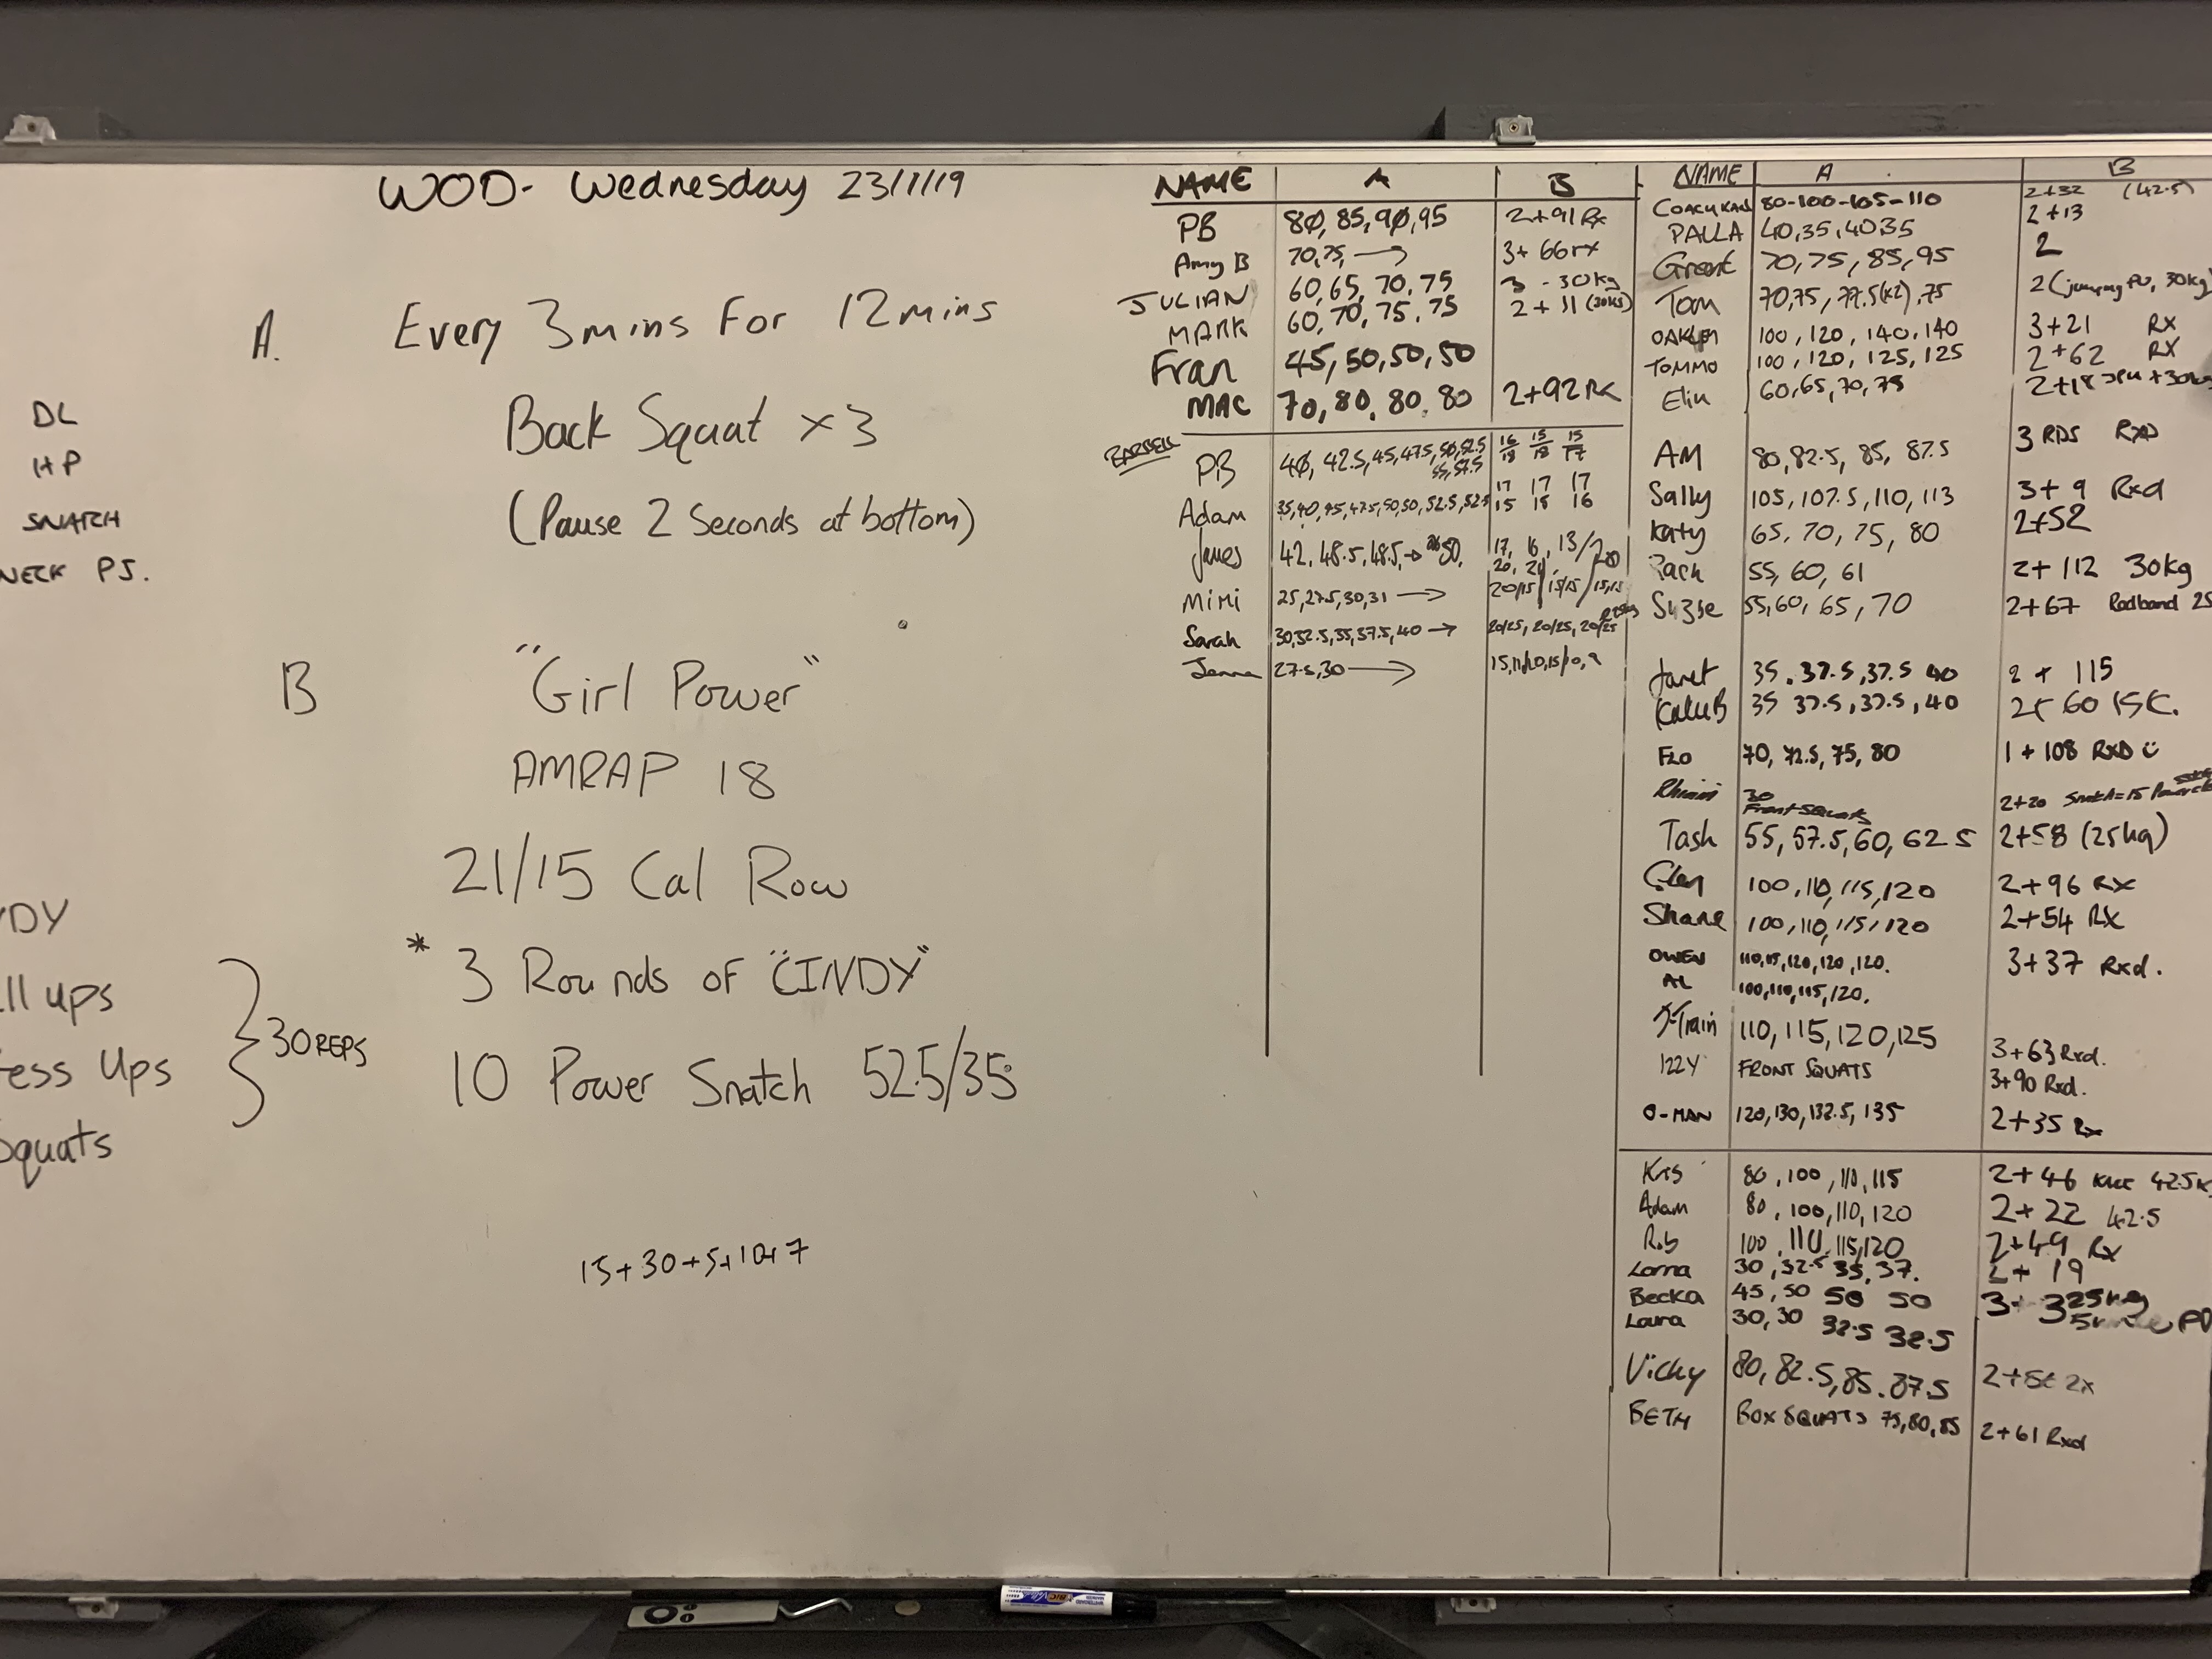 WOD- Wednesday 23/1/19
A. Every 3 mins For 12 mins
Back Squat x 3
(Pause 2 Seconds at bottom)
B "Girl Power"
AMRAP 18
21/15 Cal Row
* 3 Rounds of "CINDY"
10 Power Snatch 52.5/35
15+30+5+10+7
DL
HP
SNATCH
NECK PJ.
30 REPS
ups
Ups
Squats
NAME A B
PB 80, 85, 90, 95 2+91 Rx
Amy B 70, 75, → 3+ 66 rx
JULIAN 60, 65, 70, 75 3 - 30kg
MARK 60, 70, 75, 75 2 + 31 (30kg)
Fran 45, 50, 50, 50
MAC 70, 80, 80, 80 2+92 Rx
BARBELL
PB 40, 42.5, 45, 47.5, 50, 52.5 16 15 15
55, 57.5 18 18 17
17 17 17
Adam 35, 40, 45, 47.5, 50, 50, 52.5, 52.5 15 18 16
James 42, 48.5, 48.5, → 50, 17, 16, 13/
Mimi 25, 27.5, 30, 31 → 20/15/15/15/15/15
Sarah 30, 32.5, 35, 37.5, 40 → 20/25, 20/25, 20/25
Jenna 27.5, 30 →
NAME A B
COACH KAN 80-100-105-110 2+32 (42.5)
PAULA 40, 35, 40 35 2+13
Grant 70, 75, 85, 95 2
Tom 70, 75, 77.5 (x2), 75 2 (jumping PU, 30kg)
100, 120, 140, 140 3+21 RX
TOMMO 100, 120, 125, 125 2+62 RX
60, 65, 70, 75 2+18 +30kg
AM 80, 82.5, 85, 87.5 3 RDS RXD
Sally 105, 107.5, 110, 113 3+ 9 Rxd
Katy 65, 70, 75, 80 2+52
Rach 55, 60, 61 2+ 112 30kg
Suzie 55, 60, 65, 70 2+67 Redband 25
Janet 35, 37.5, 37.5 40 2 + 115
35 37.5, 37.5, 40 2+ 60 15
FLO 70, 72.5, 75, 80 1 + 108 RXD
30 Front Squats 2+20
Tash 55, 57.5, 60, 62.5 2+58 (25kg)
100, 110, 115, 120 2+96 RX
Shane 100, 110, 115, 120 2+54 RX
OWEN 110, 115, 120, 120, 120. 3+37 Rxd.
AL 100, 110, 115, 120.
J-Train 110, 115, 120, 125 3+63 Rxd.
IZZY FRONT SQUATS 3+90 Rxd.
O-MAN 120, 130, 132.5, 135 2+35 Rx
Kris 80, 100, 110, 115 2+46 42.5K
Adam 80, 100, 110, 120 2+ 22 42.5
Rob 100, 110, 115, 120 2+49 Rx
Lorna 30, 32.5 35, 37. 2+ 19
Becka 45, 50 50 50 3+ 3 25kg
Laura 30, 30 32.5 32.5
Vicky 80, 82.5, 85. 87.5
BETH BOX SQUATS 75, 80, 85 2+61 Rxd